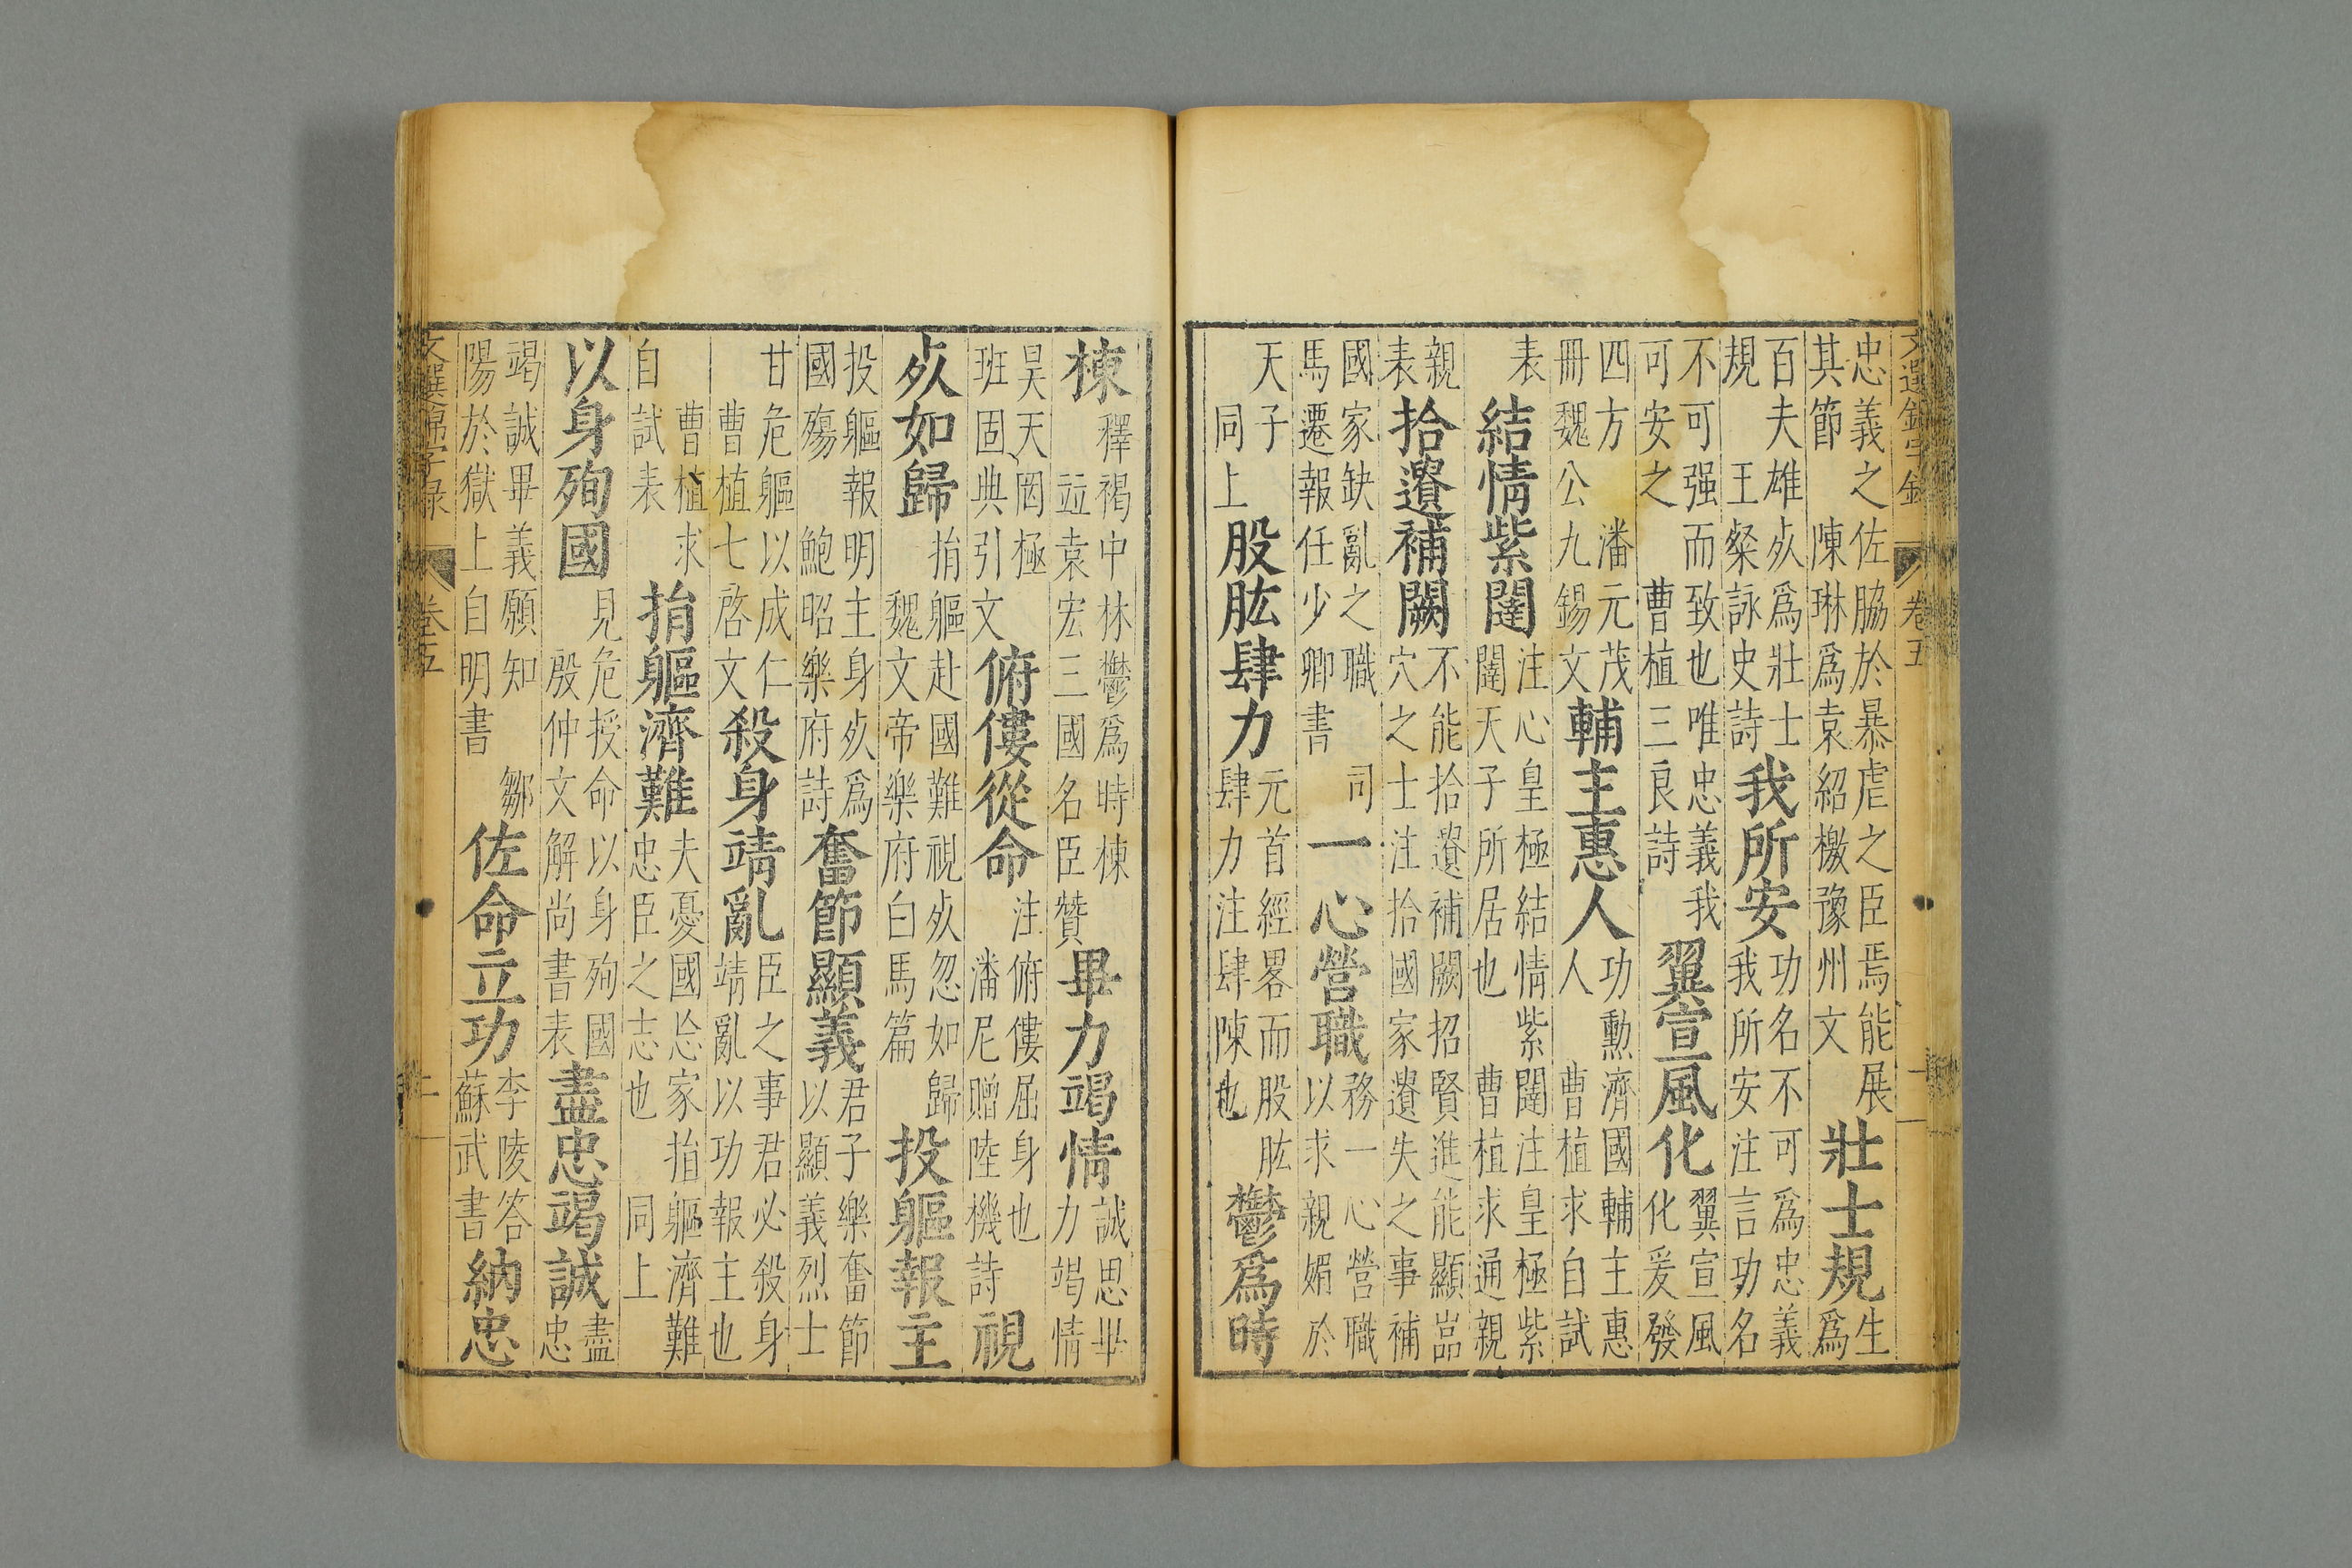 文選錦字錄 卷五 十一
忠義之佐脇於暴虐之臣焉能展
其節 陳琳爲袁紹檄豫州文
壯士規
生
爲
百夫雄死爲壯士
規 王粲詠史詩
我所安
功名不可爲忠義
我所安注言功名
不可强而致也唯忠義我
可安之 曹植三良詩
翼宣風化
翼宣風
化爰發
四方 潘元茂
冊魏公九錫文
輔主惠人
功勳濟國輔主惠
人 曹植求自試
表
結情紫闥
注心皇極結情紫闥注皇極紫
闥天子所居也 曹植求通親
親
表
拾遺補闕
不能拾遺補闕招賢進能顯嵓
穴之士注拾國家遺失之事補
國家缺亂之職 司
馬遷報任少卿書
一心營職
務一心營職
以求親媚於
天子
同上
股肱肆力
元首經畧而股肱
肆力注肆陳也
鬱爲時
棟
釋褐中林鬱爲時棟
竝袁宏三國名臣贊
畢力竭情
誠思畢
力竭情
昊天罔極
班固典引文
俯僂從命
注俯僂屈身也
潘尼贈陸機詩
視
死如歸
捐軀赴國難視死忽如歸
魏文帝樂府白馬篇
投軀報主
投軀報明主身死爲
國殤 鮑昭樂府詩
奮節顯義
君子樂奮節
以顯義烈士
甘危軀以成仁
曹植七啓文
殺身靖亂
臣之事君必殺身
靖亂以功報主也
曹植求
自試表
捐軀濟難
夫憂國忘家捐軀濟難
忠臣之志也 同上
以身殉國
見危授命以身殉國
殷仲文解尚書表
盡忠竭誠
盡
忠
竭誠畢義願知 鄒
陽於獄上自明書
佐命立功
李陵答
蘇武書
納忠
文選錦字錄 卷五 十一